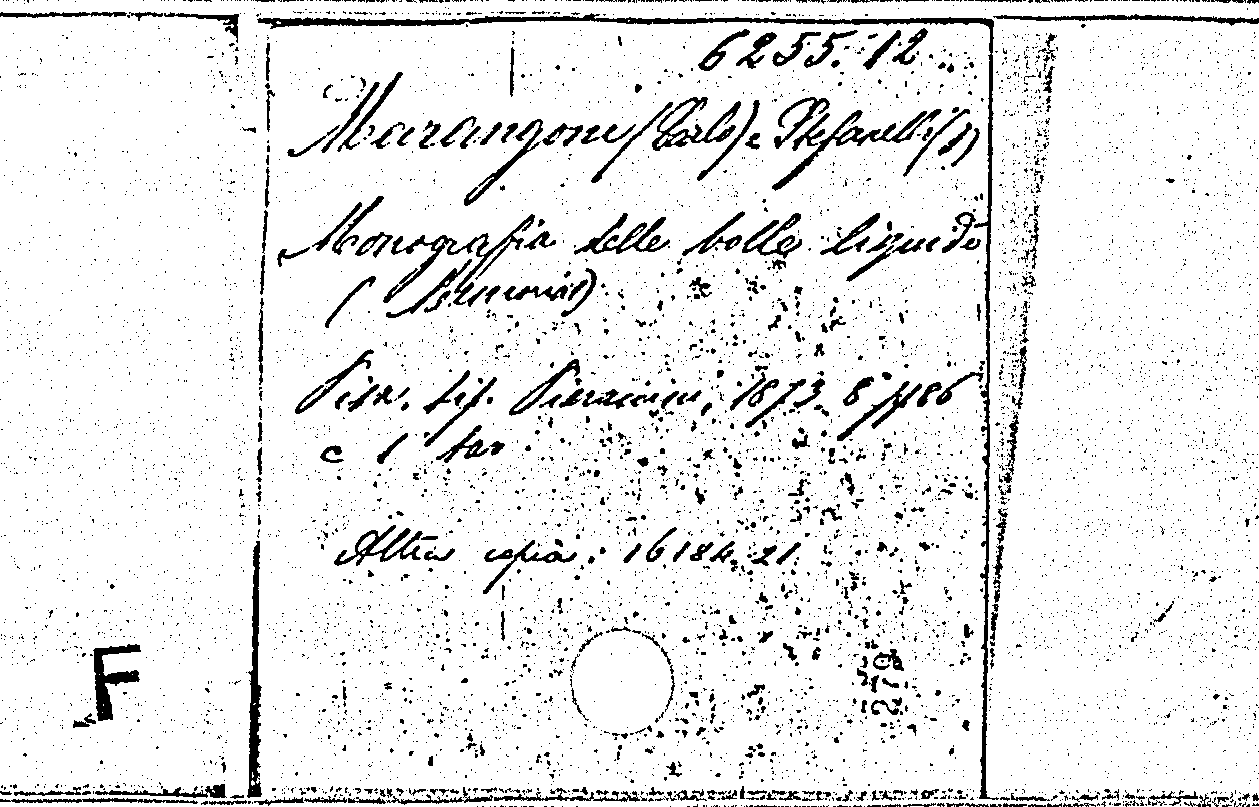 6255.12
Marangoni (Carlo) e Stefanelli (P)
Monografia delle bolle liquide
(
Pisa. tip. Pieraccini, 1873 8° pp 86
c 1 tav
Altra copia: 16184.21
F